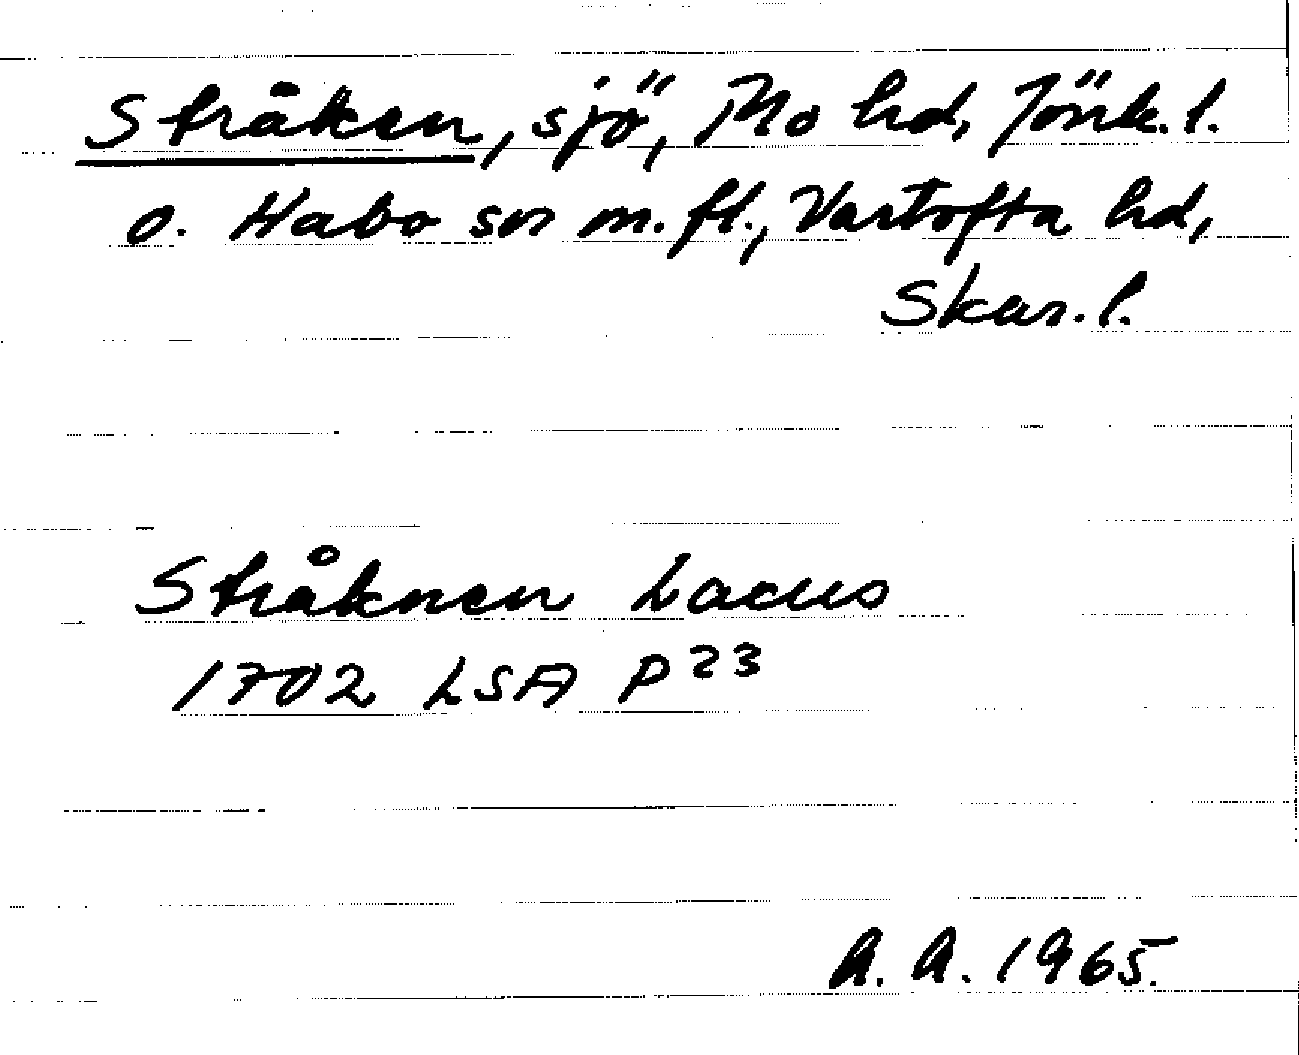 Stråken, sjö, Mo hd, Jönk. l.
o. Habo sn m. fl., Vartofta hd,
Skar. l.
Stråknen Lacus
1702 LSA P 23
A. A. 1965.